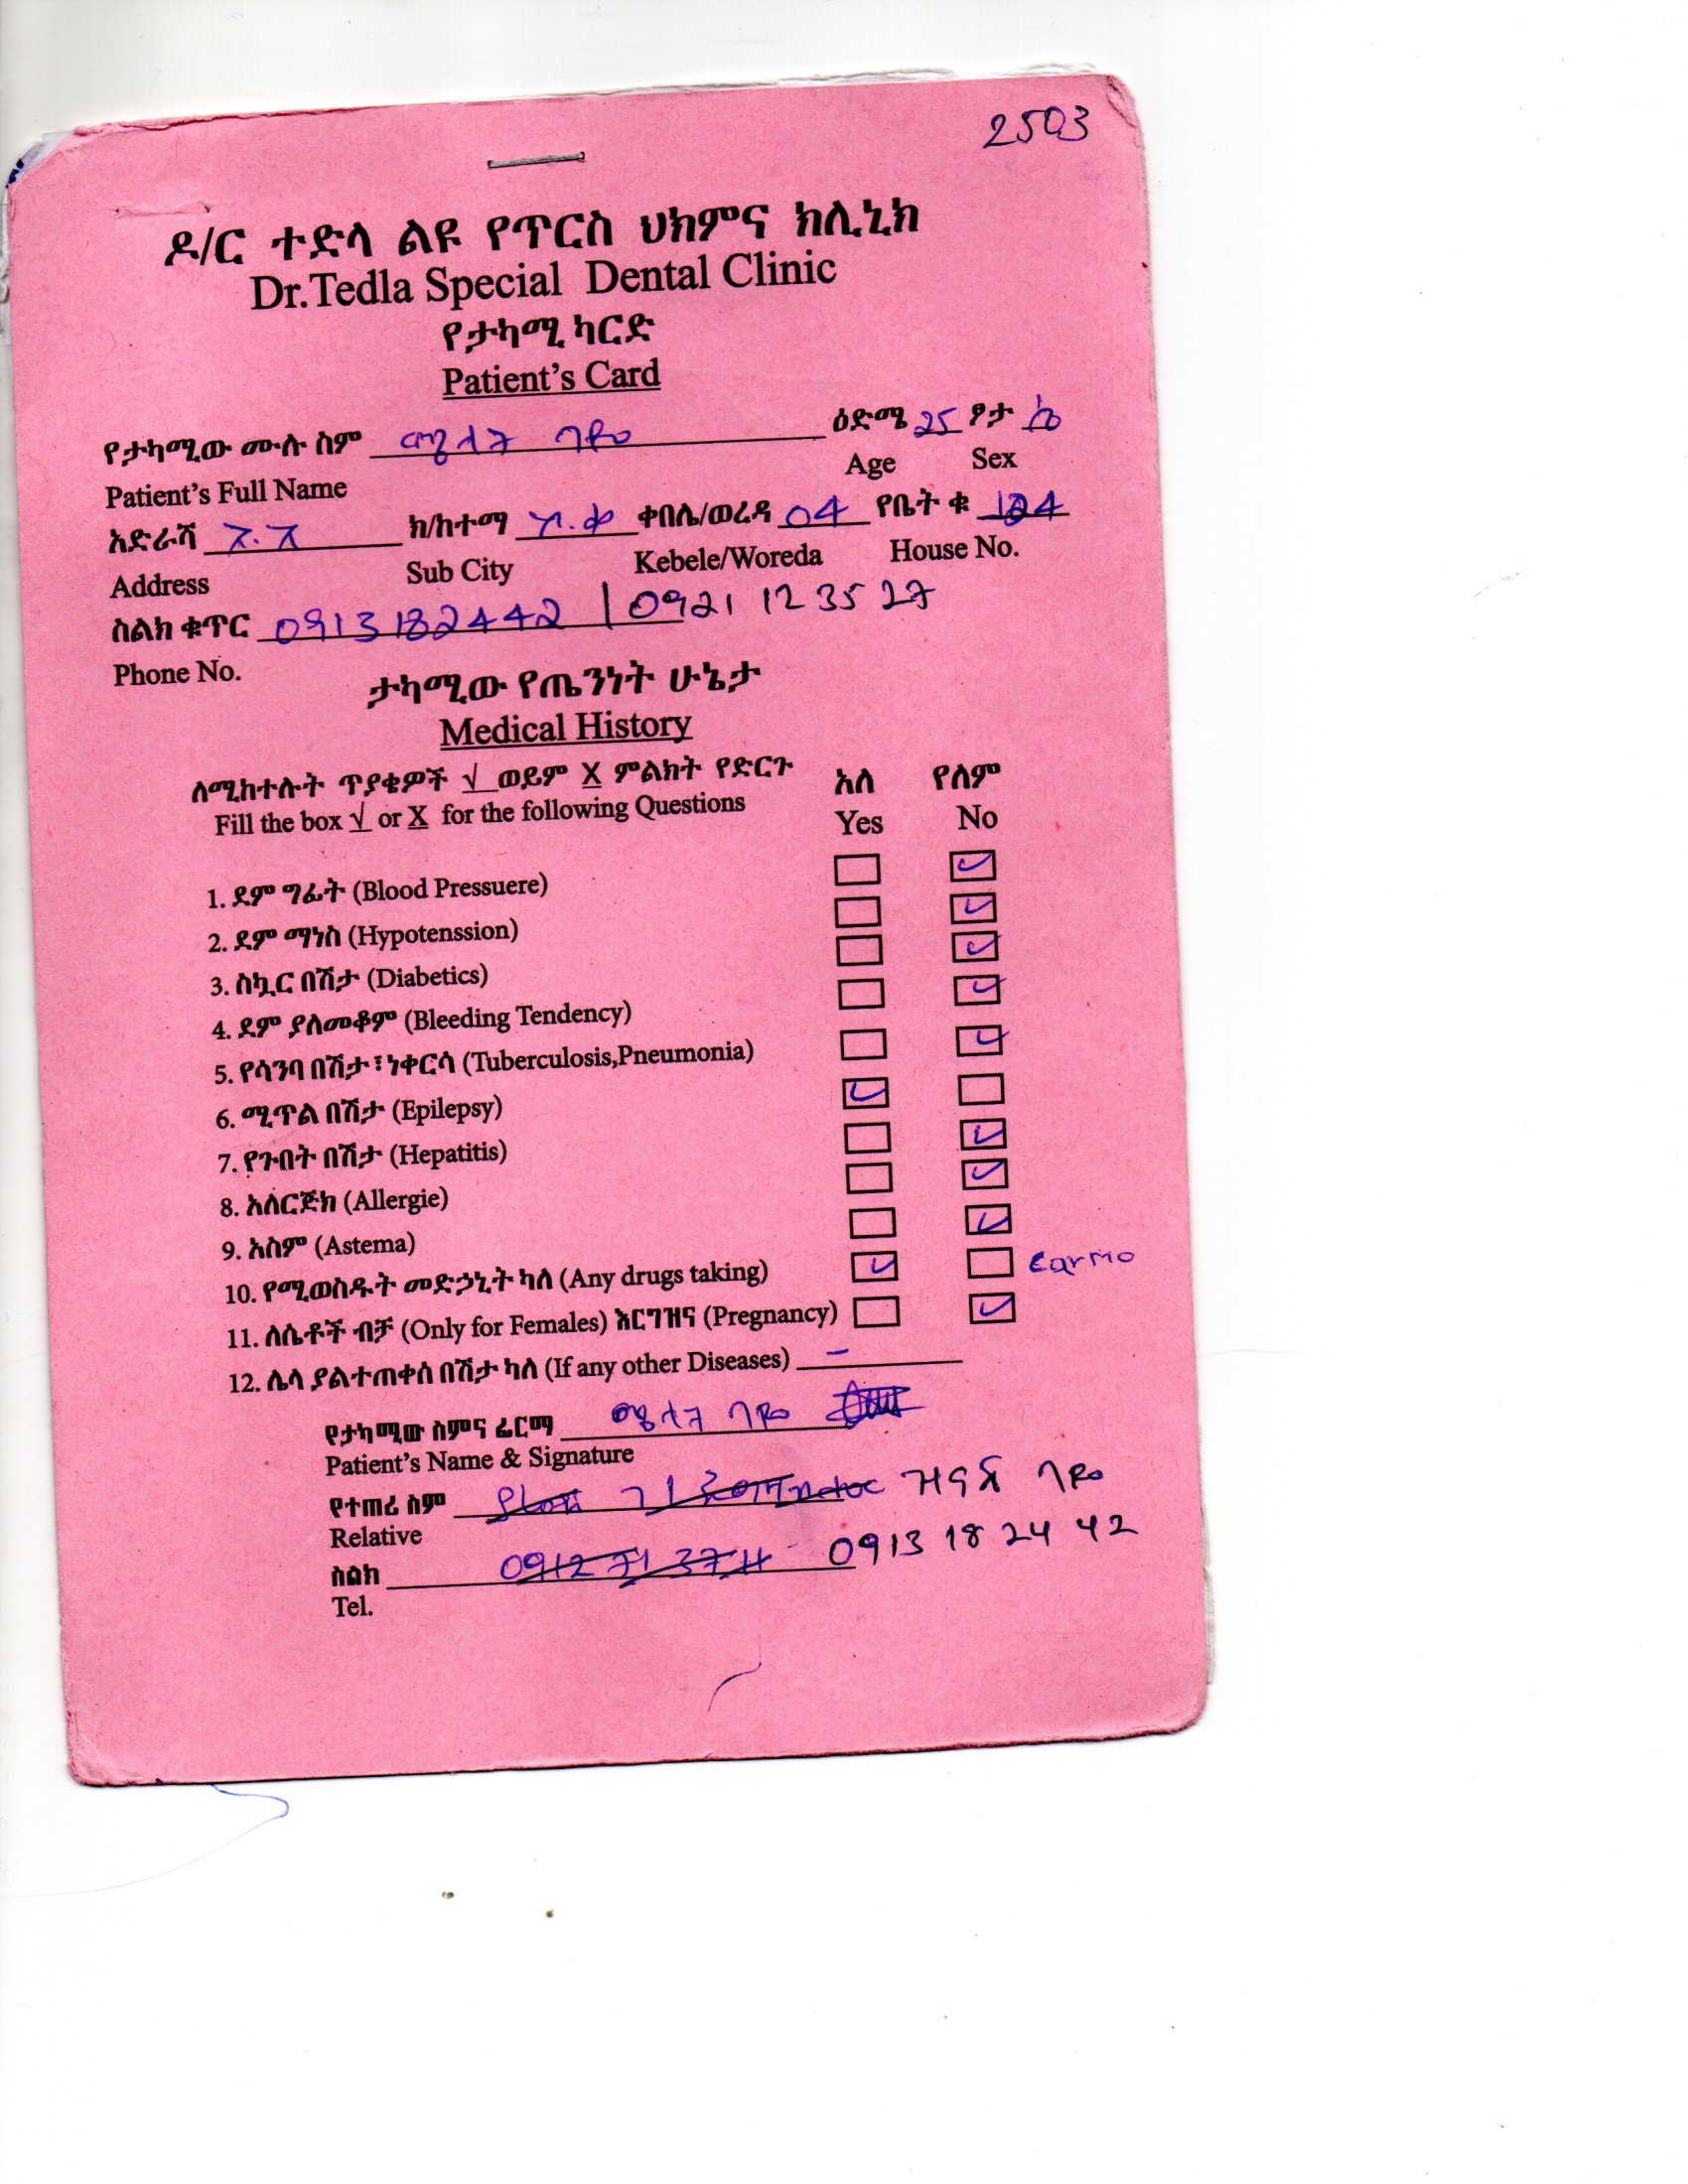 2503
ዶ/ር ተድላ ልዩ የጥርስ ህክምና ክሊኒክ
Dr.Tedla Special Dental Clinic
የታካሚ ካርድ
Patient's Card
የታካሚው ሙሉ ስም ዕድሜ 25 ፆታ
Patient's Full Name Age Sex
አድራሻ ክ/ከተማ ቀበሌ/ወረዳ 04 የቤት ቁ
Address Sub City Kebele/Woreda House No.
ስልክ ቁጥር 0913182442 / 0921 12 35 27
Phone No.
ታካሚው የጤንነት ሁኔታ
Medical History
ለሚከተሉት ጥያቄዎች √ ወይም X ምልክት የድርጉ አለ የለም
Fill the box √ or X for the following Questions Yes No
1. ደም ግፊት (Blood Pressuere) ✓
2. ደም ማነስ (Hypotenssion) ✓
3. ስኳር በሽታ (Diabetics) ✓
4. ደም ያለመቆም (Bleeding Tendency) ✓
5. የሳንባ በሽታ፣ ነቀርሳ (Tuberculosis,Pneumonia) ✓
6. ሚጥል በሽታ (Epilepsy) ✓
7. የጉበት በሽታ (Hepatitis) ✓
8. አለርጅክ (Allergie) ✓
9. አስም (Astema) ✓
10. የሚወስዱት መድኃኒት ካለ (Any drugs taking) ✓
11. ለሴቶች ብቻ (Only for Females) እርግዝና (Pregnancy) ✓
12. ሌላ ያልተጠቀሰ በሽታ ካለ (If any other Diseases) –
የታካሚው ስምና ፊርማ
Patient's Name & Signature
የተጠሪ ስም
Relative
ስልክ 0913 18 24 42
Tel.